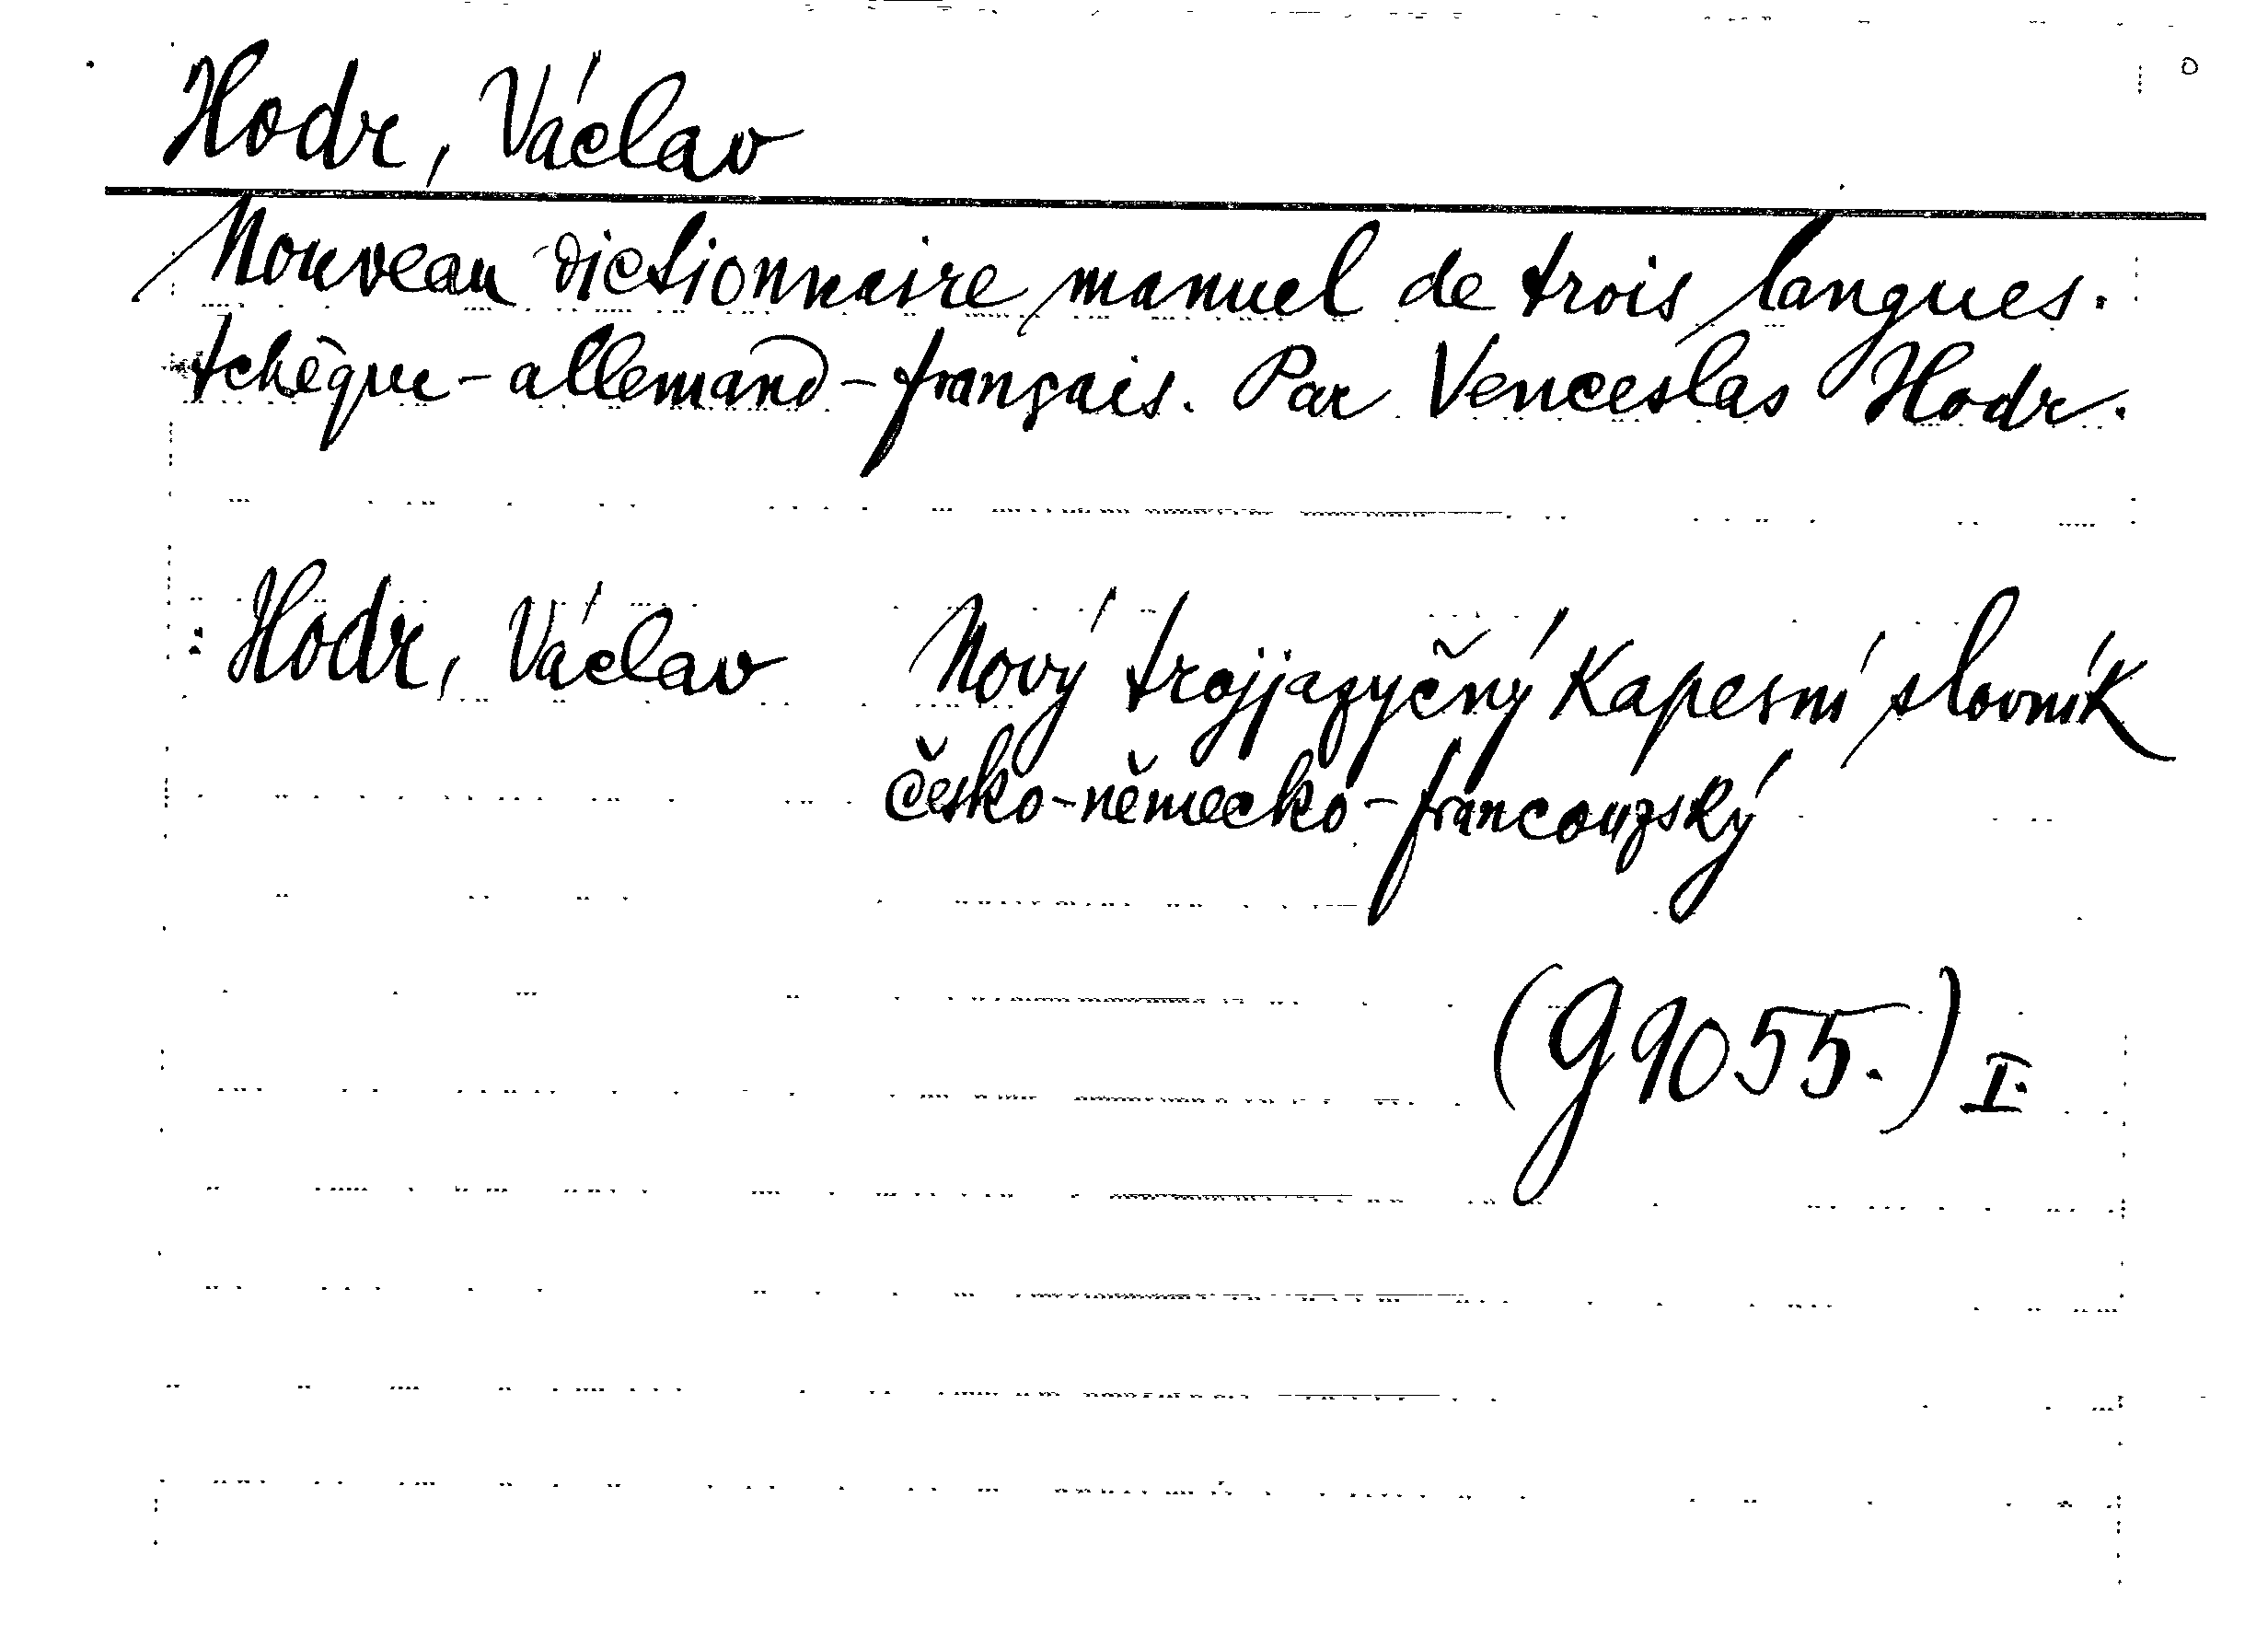 Hodr, Václav
Nouveau dictionnaire manuel de trois langues.
tchèque-allemand-français. Par Venceslas Hodr.
Hodr, Václav Nový trojjazyčný kapesní slovník
česko-německo-francouzský
(g 9055.) I.